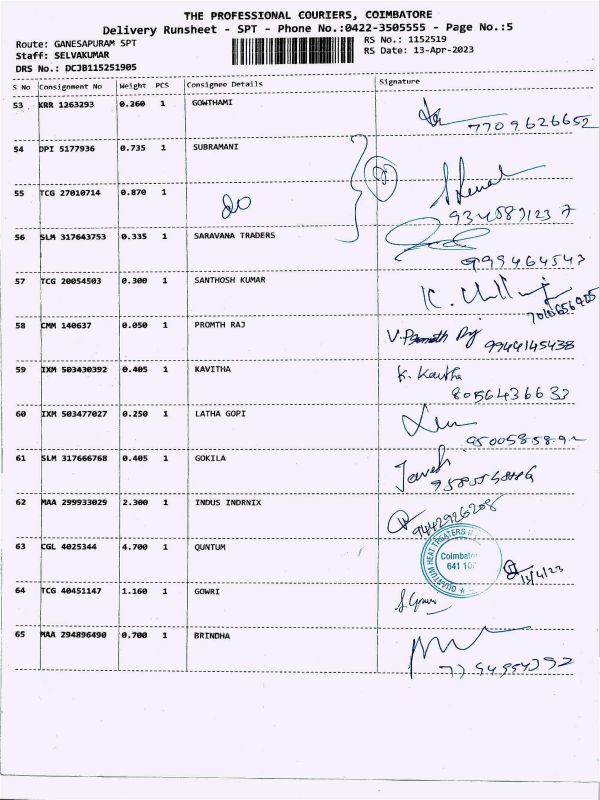 THE PROFESSIONAL COURIERS, COIMBATORE
Delivery Runsheet - SPT - Phone No.:0422-3505555 - Page No.:5
Route: GANESAPURAM SPT
RS No.: 1152519
Staff: SELVAKUMAR
RS Date: 13-Apr-2023
DRS No.: DCJB115251905
S No Consignment No Weight PCS Consignee Details Signature
53 KRR 1263293 0.260 1 GOWTHAMI
7709626652
54 DPI 5177936 0.735 1 SUBRAMANI
55 TCG 27010714 0.870 1
do
56 SLM 317643753 0.335 1 SARAVANA TRADERS
999464543
57 TCG 20054503 0.300 1 SANTHOSH KUMAR
58 CMM 140637 0.050 1 PROMTH RAJ
9944145438
59 IXM 503430392 0.405 1 KAVITHA
K. Kavitha
8056436633
60 IXM 503477027 0.250 1 LATHA GOPI
61 SLM 317666768 0.405 1 GOKILA
62 MAA 299933029 2.300 1 INDUS INDRNIX
9442926208
63 CGL 4025344 4.700 1 QUNTUM
QUANTUM HEAT TREATERS
Coimbatore
641 107
13/4/23
64 TCG 40451147 1.160 1 GOWRI
65 MAA 294896490 0.700 1 BRINDHA